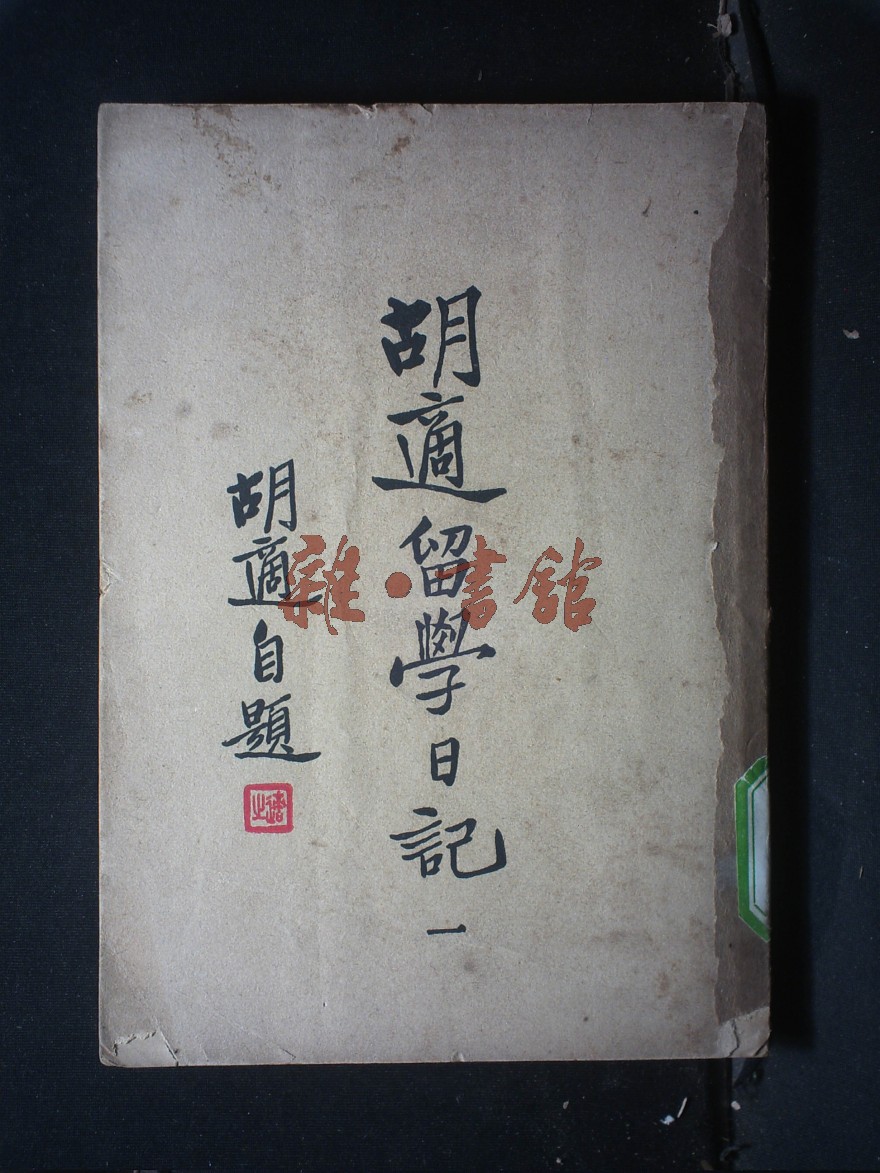 胡適留學日記
一
胡適自題
適之
雜·書館